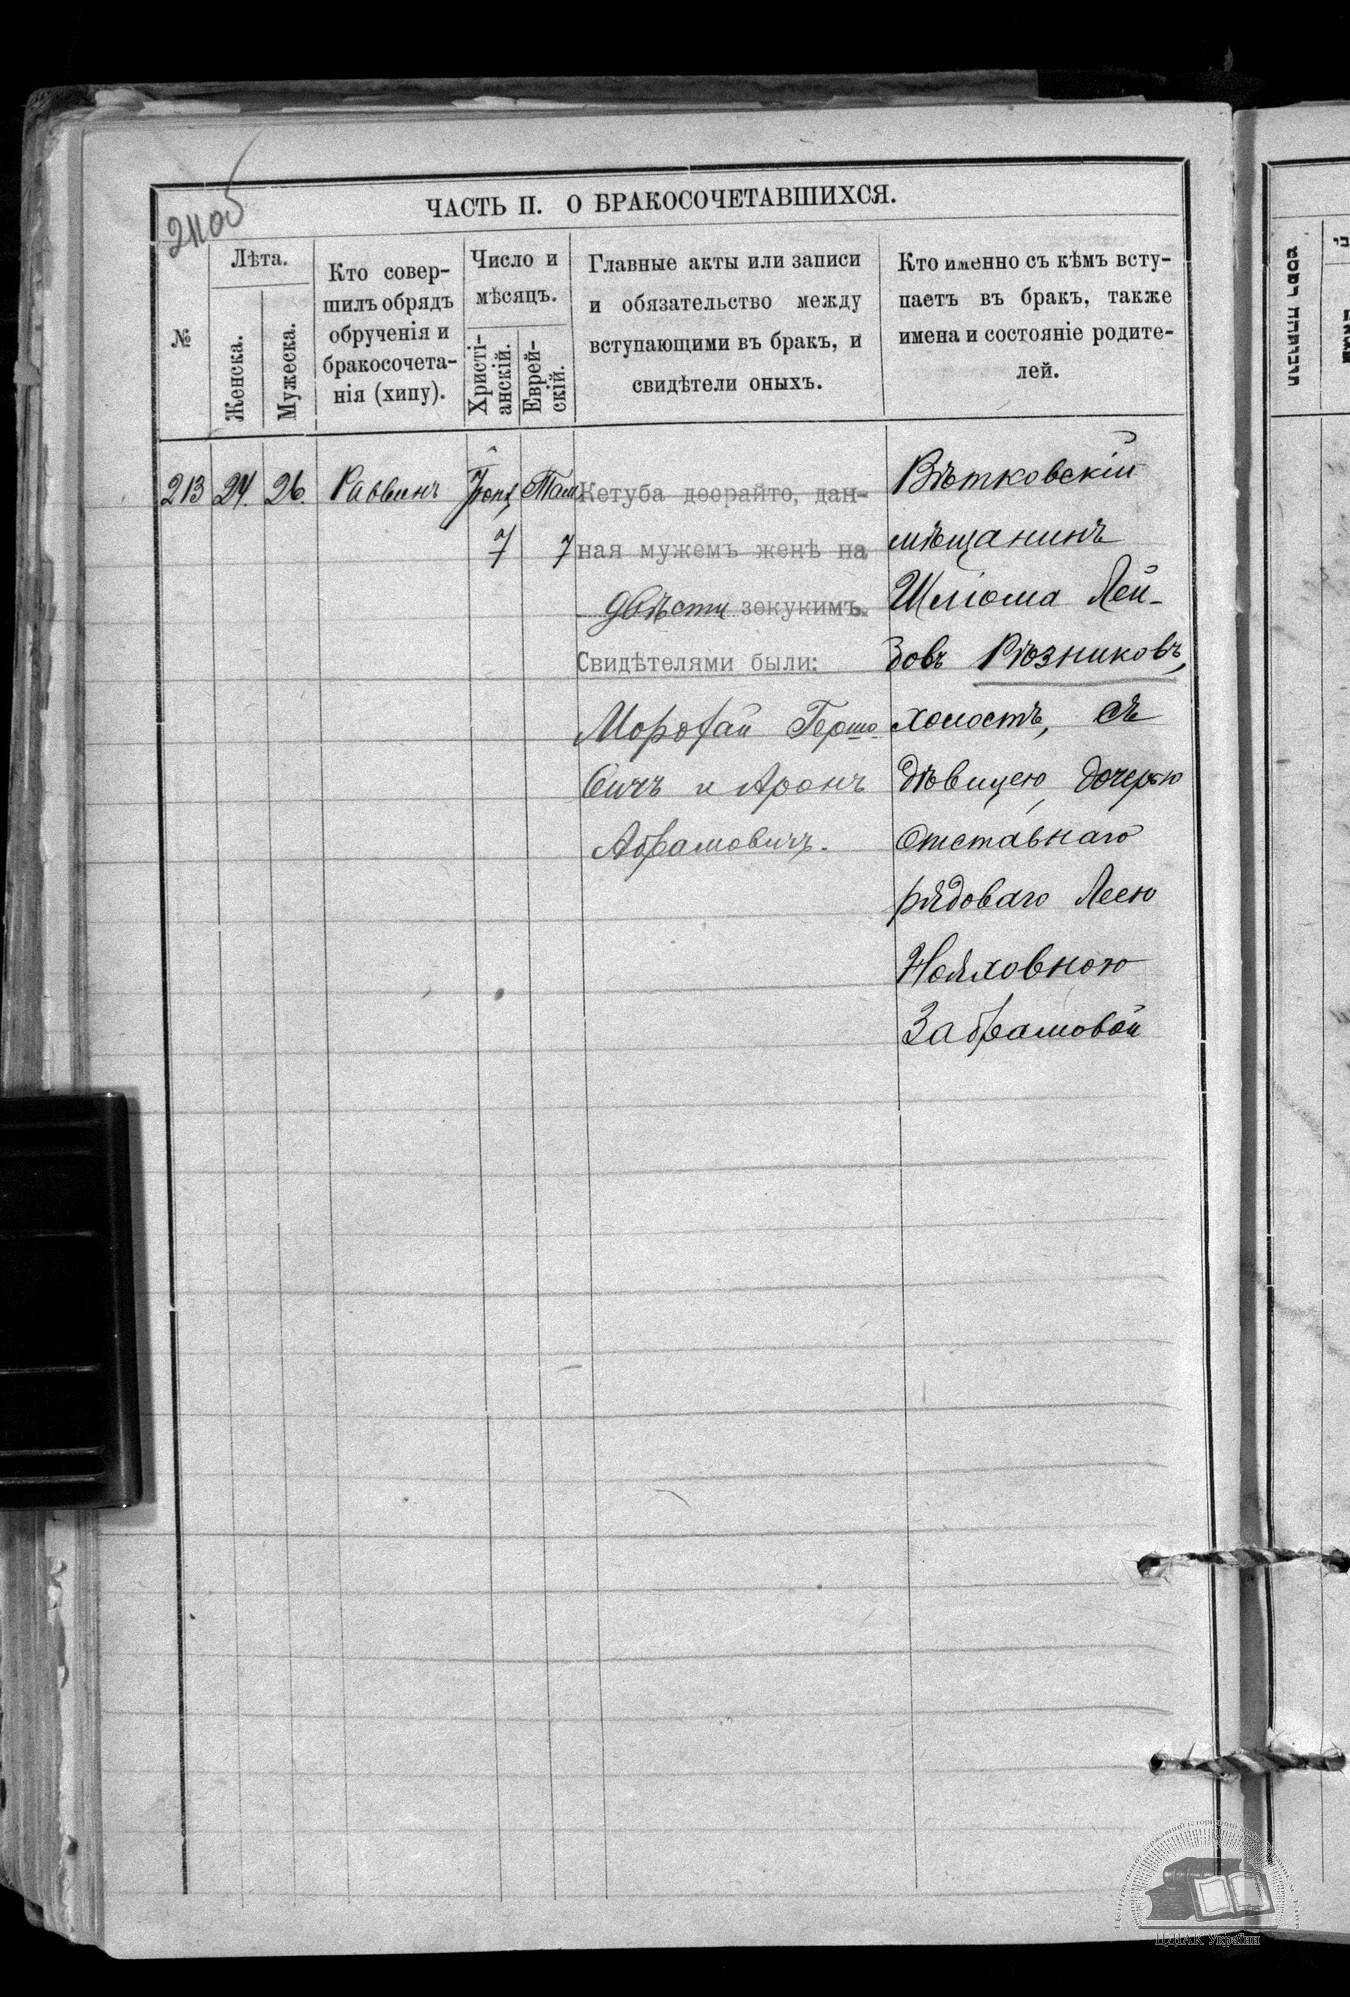 211об
ЧАСТЬ II. О БРАКОСОЧЕТАВШИХСЯ.
№
Лѣта.
Женска.
Мужеска.
Кто совер-
шилъ обрядъ
обрученія и
бракосочета-
нія (хипу).
Число и
мѣсяцъ.
Христі-
анскій.
Еврей-
скій.
Главные акты или записи
и обязательство между
вступающими въ бракъ, и
свидѣтели оныхъ.
Кто именно съ кѣмъ всту-
паетъ въ бракъ, также
имена и состояніе родите-
лей.
213 24. 26. Раввинъ Там
7 7
Кетуба деорайто, дан-
ная мужемъ женѣ на
двѣсти зекукимъ.
Свидѣтелями были:
Мордхай Гершо
вичъ и Аронъ
Абрамовичъ.
Вѣтковскій
мѣщанинъ
Шліома Лей-
зовъ Рѣзниковъ,
холостъ, съ
дѣвицею, дочерью
отставнаго
рядоваго Леею
Нояховною
Забрамовой
ЦДІАК України